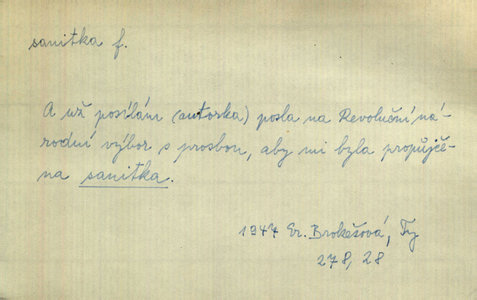 sanitka f.
A už posílám (autorka) posla na Revoluční ná-
rodní výbor s prosbou, aby mi byla propůjče-
na sanitka.
1947 Er. Brokešová, Ty
278, 28